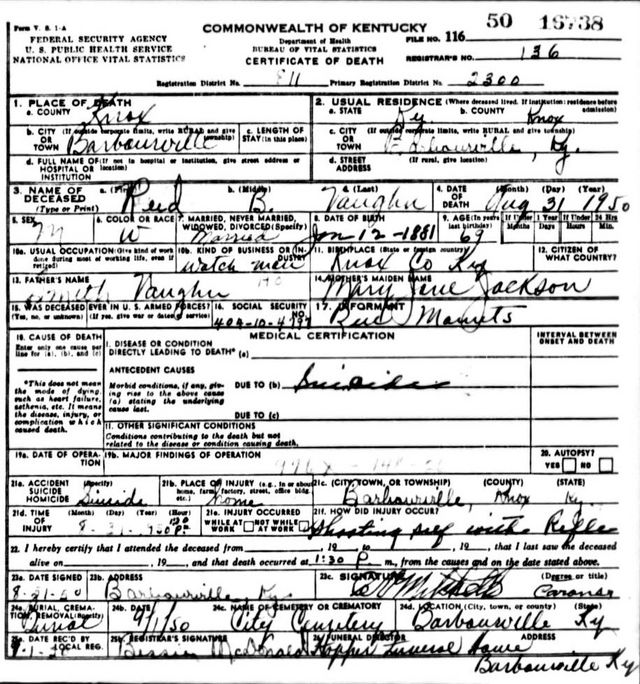 Form V. S. 1-A
FEDERAL SECURITY AGENCY
U. S. PUBLIC HEALTH SERVICE
NATIONAL OFFICE VITAL STATISTICS
COMMONWEALTH OF KENTUCKY
Department of Health
BUREAU OF VITAL STATISTICS
CERTIFICATE OF DEATH
50 16738
FILE NO. 116
REGISTRAR'S NO. 136
Registration District No. Primary Registration District No. 2300
1. PLACE OF DEATH
a. COUNTY Knox
b. CITY (If outside corporate limits, write RURAL and give township) OR TOWN Barbourville
c. LENGTH OF STAY (in this place)
d. FULL NAME OF (If not in hospital or institution, give street address or location) HOSPITAL OR INSTITUTION
2. USUAL RESIDENCE (Where deceased lived. If institution: residence before admission)
a. STATE Ky b. COUNTY Knox
c. CITY (If outside corporate limits, write RURAL and give township) OR TOWN Barbourville, Ky.
d. STREET ADDRESS (If rural, give location)
3. NAME OF DECEASED (Type or Print) a. (First) Reid b. (Middle) B. c. (Last) Vaughn
4. DATE OF DEATH (Month) (Day) (Year) Aug 31 1950
5. SEX M
6. COLOR OR RACE W
7. MARRIED, NEVER MARRIED, WIDOWED, DIVORCED (Specify) Married
8. DATE OF BIRTH Jan-12-1881
9. AGE (In years last birthday) 69 If Under 1 Year Months Days If Under 24 Hrs
10a. USUAL OCCUPATION (Give kind of work done during most of working life, even if retired)
10b. KIND OF BUSINESS OR INDUSTRY Watch man
11. BIRTHPLACE (State or foreign country) Knox Co Ky
12. CITIZEN OF WHAT COUNTRY?
13. FATHER'S NAME Vaughn
14. MOTHER'S MAIDEN NAME Mary Jane Jackson
15. WAS DECEASED EVER IN U. S. ARMED FORCES? (Yes, no, or unknown) (If yes, give war or dates of service)
16. SOCIAL SECURITY NO.
17. INFORMANT
18. CAUSE OF DEATH
Enter only one cause per line for (a), (b), and (c)
*This does not mean the mode of dying, such as heart failure, asthenia, etc. It means the disease, injury, or complication which caused death.
MEDICAL CERTIFICATION
INTERVAL BETWEEN ONSET AND DEATH
I. DISEASE OR CONDITION DIRECTLY LEADING TO DEATH* (a)
ANTECEDENT CAUSES
Morbid conditions, if any, giving rise to the above cause (a) stating the underlying cause last.
DUE TO (b) Suicide
DUE TO (c)
II. OTHER SIGNIFICANT CONDITIONS
Conditions contributing to the death but not related to the disease or condition causing death.
19a. DATE OF OPERATION
19b. MAJOR FINDINGS OF OPERATION
20. AUTOPSY? YES NO
21a. ACCIDENT SUICIDE HOMICIDE (Specify) Suicide
21b. PLACE OF INJURY (e.g., in or about home, farm, factory, street, office bldg. etc.) home
21c. (CITY, TOWN, OR TOWNSHIP) (COUNTY) (STATE) Barbourville, Knox Ky.
21d. TIME OF INJURY (Month) (Day) (Year) (Hour)
21e. INJURY OCCURRED WHILE AT WORK NOT WHILE AT WORK
21f. HOW DID INJURY OCCUR? Shooting self with Rifle
22. I hereby certify that I attended the deceased from , 19 to , 19 , that I last saw the deceased
alive on , 19 , and that death occurred at 1:30 P m., from the causes and on the date stated above.
23a. DATE SIGNED 8-31-50
23b. ADDRESS Barbourville, Ky.
23c. SIGNATURE Mitchell (Degree or title) Coroner
24a. BURIAL, CREMATION, REMOVAL (Specify) Burial
24b. DATE 9/1/50
24c. NAME OF CEMETERY OR CREMATORY City Cemetery
24d. LOCATION (City, town, or county) (State) Barbourville Ky
25a. DATE REC'D BY LOCAL REG.
25b. REGISTRAR'S SIGNATURE Bessie McDonald
26. FUNERAL DIRECTOR ADDRESS Hopper Funeral Home
Barbourville Ky